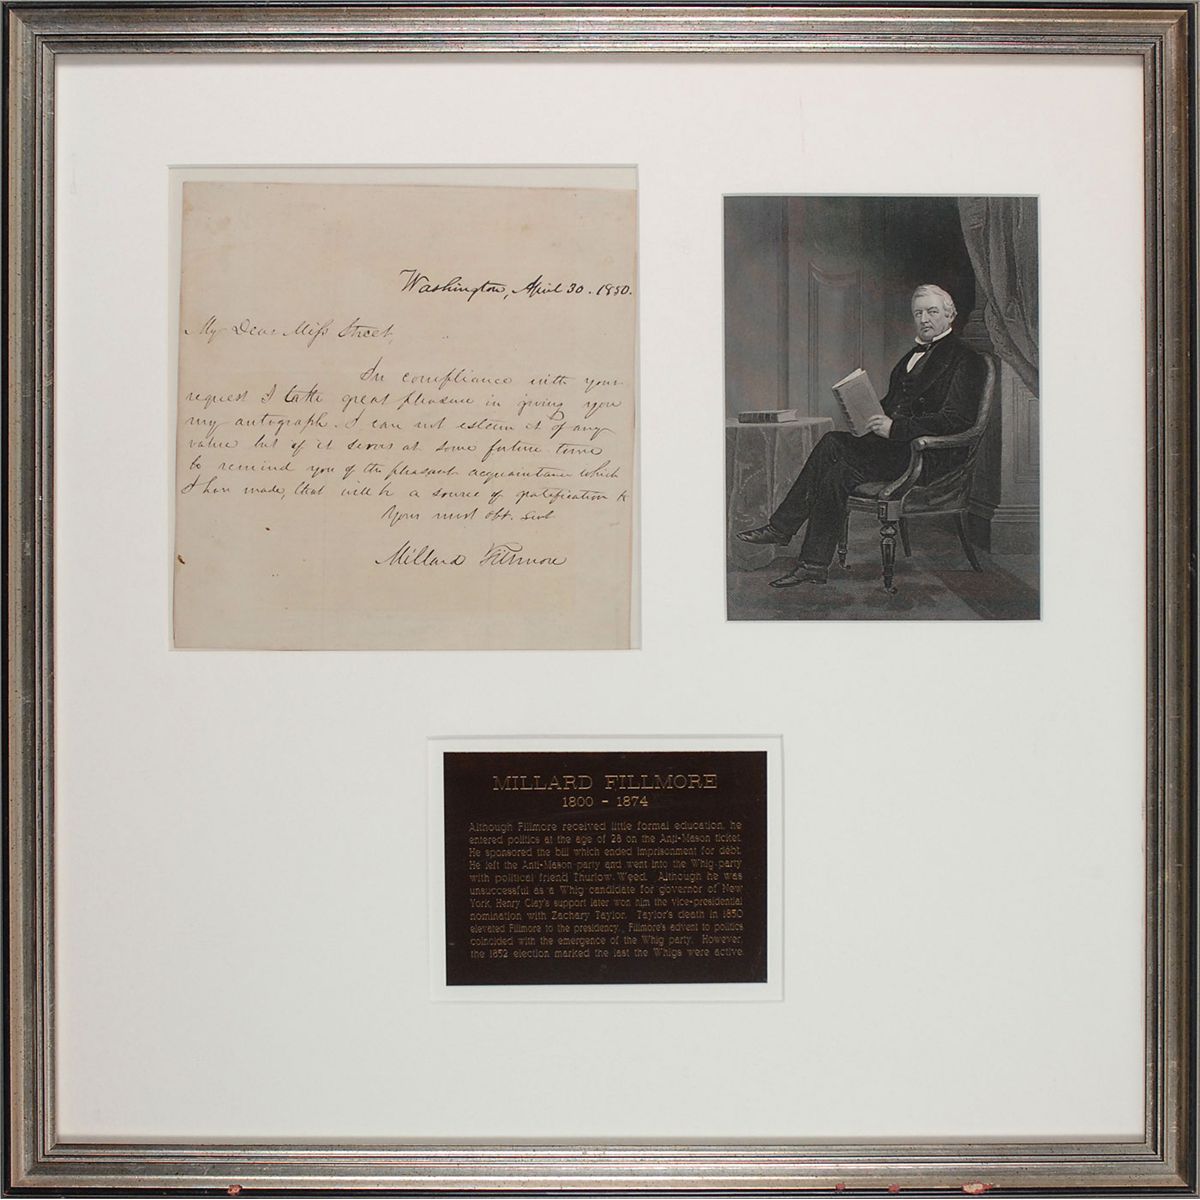 Washington, April 30. 1850.
My Dear Miss Street,
In compliance with your
request I take great pleasure in giving you
my autograph. I can not esteem it of any
value but if it serves at some future time
to remind you of the pleasant acquaintance which
I have made, that will be a source of gratification to
Your most obt. svt
Millard Fillmore
MILLARD FILLMORE
1800 - 1874
Although Fillmore received little formal education, he
entered politics at the age of 28 on the Anti-Mason ticket.
He sponsored the bill which ended imprisonment for debt.
He left the Anti-Mason party and went into the Whig party
with political friend Thurlow Weed. Although he was
unsuccessful as a Whig candidate for governor of New
York, Henry Clay's support later won him the vice-presidential
nomination with Zachary Taylor. Taylor's death in 1850
elevated Fillmore to the presidency. Fillmore's advent to politics
coincided with the emergence of the Whig party. However,
the 1852 election marked the last the Whigs were active